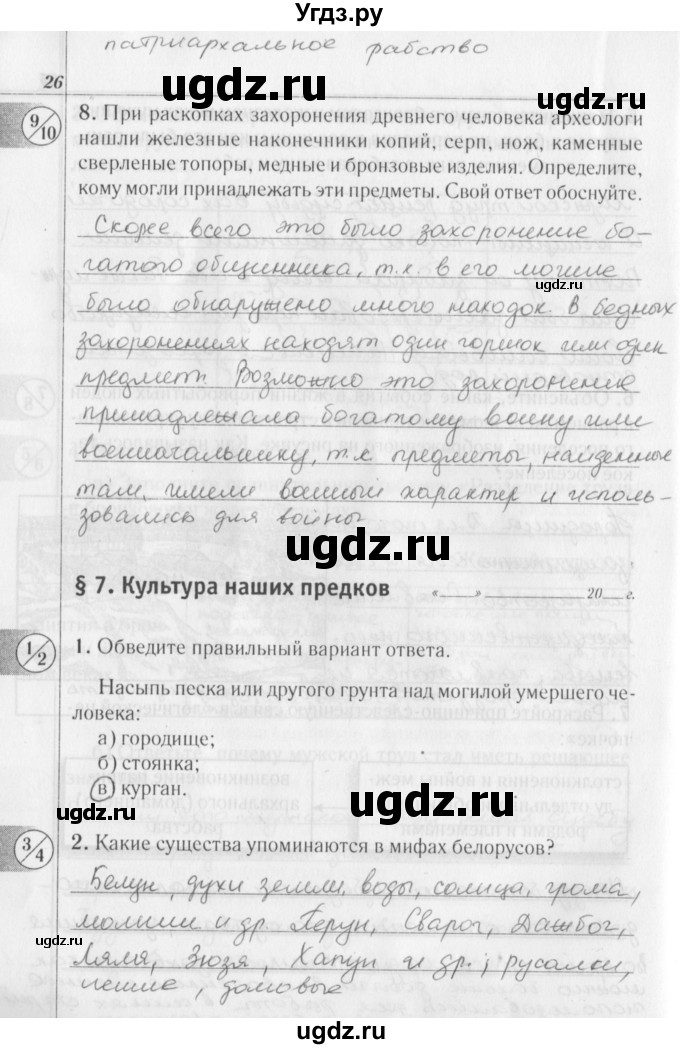 Угдз.ру
патриархальное рабство
26
9/10
8. При раскопках захоронения древнего человека археологи
нашли железные наконечники копий, серп, нож, каменные
сверленые топоры, медные и бронзовые изделия. Определите,
кому могли принадлежать эти предметы. Свой ответ обоснуйте.
Скорее всего это было захоронение бо-
гатого общинника, т.к. в его могиле
было обнаружено много находок. В бедных
захоронениях находят один горшок или один
предмет. Возможно это захоронение
принадлежала богатому воину или
военначальнику, т.к предметы, найденные
там, имели военный характер и исполь-
зовались для войны
§ 7. Культура наших предков «____» ____________ 20__ г.
1/2
1. Обведите правильный вариант ответа.
Насыпь песка или другого грунта над могилой умершего че-
ловека:
а) городище;
б) стоянка;
в) курган.
3/4
2. Какие существа упоминаются в мифах белорусов?
Белун, духи земли, воды, солнца, грома,
молнии и др. Перун, Сварог, Дажбог,
Ляля, Зюзя, Хапун и др.; русалки,
лешие, домовые
ugdz.ru
ugdz.ru
ugdz.ru
ugdz.ru
ugdz.ru
ugdz.ru
ugdz.ru
ugdz.ru
ugdz.ru